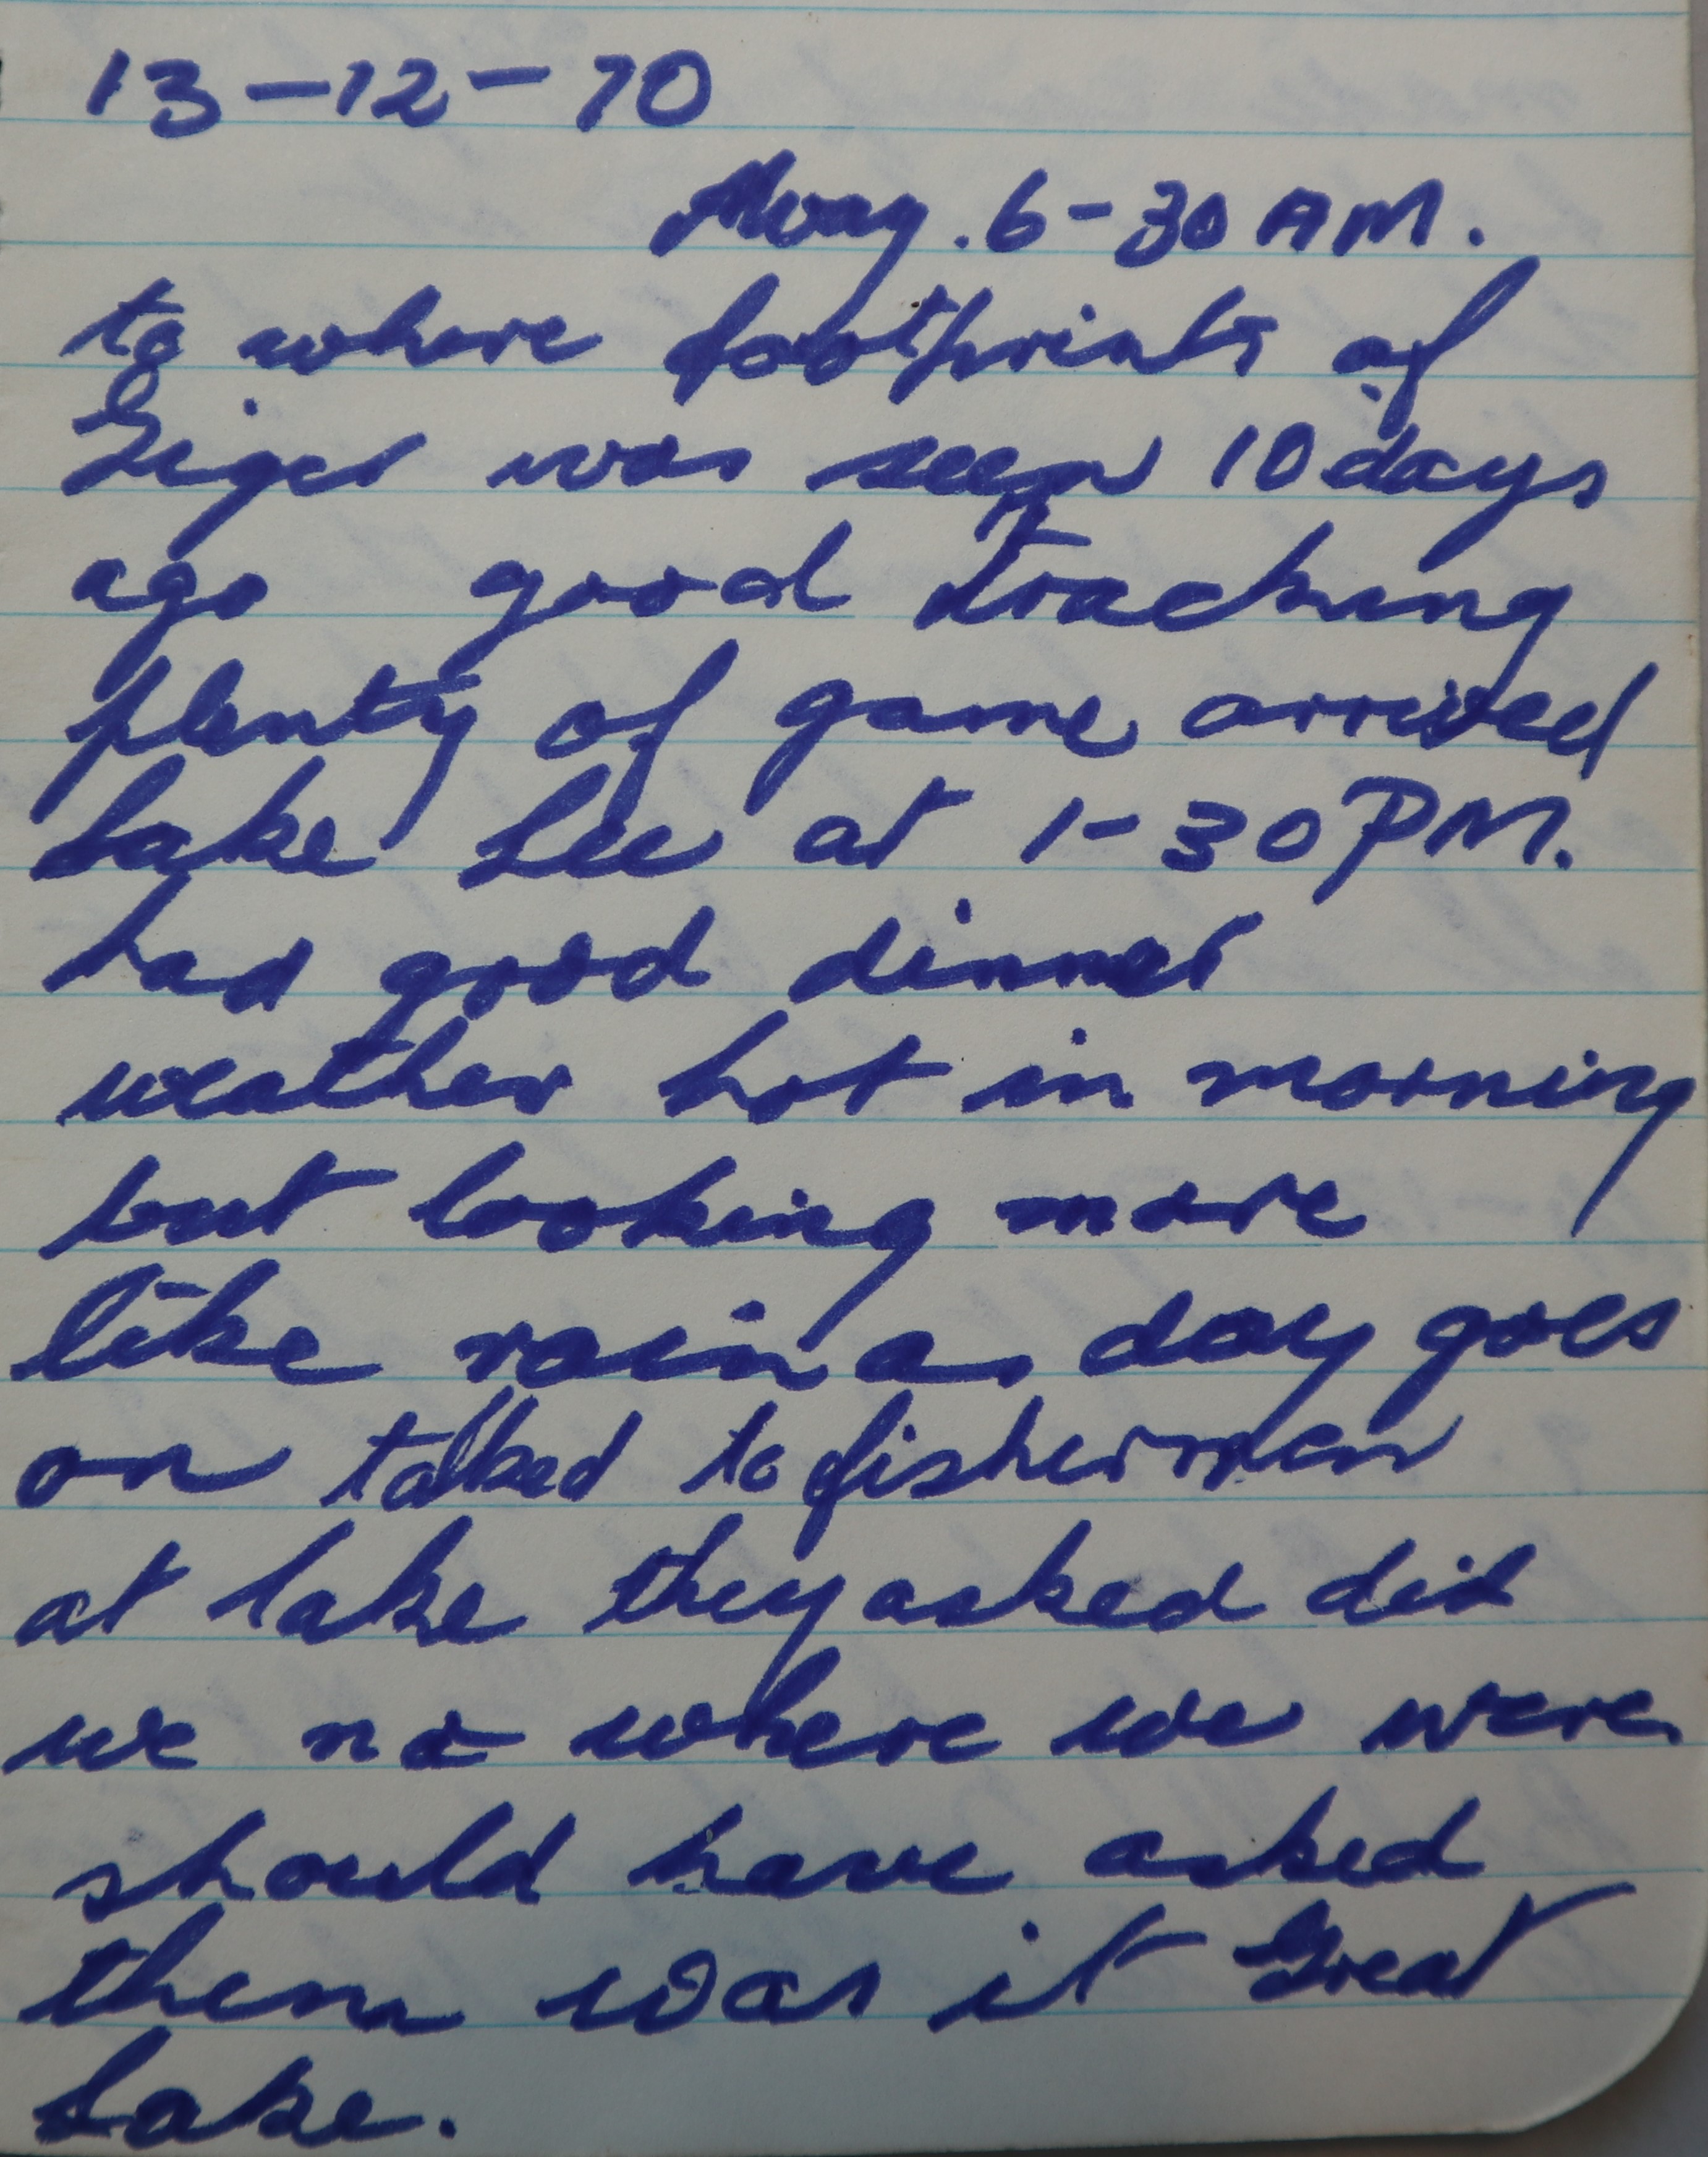 13-12-70
Away. 6-30 AM.
to where footprints of
Tiger was seen 10 days
ago good tracking
plenty of game arrived
Lake Lee at 1-30 PM.
had good dinner
weather hot in morning
but looking more
like rain as day goes
on talked to fishermen
at lake they asked did
we no where we were
should have asked
them was it Great
Lake.